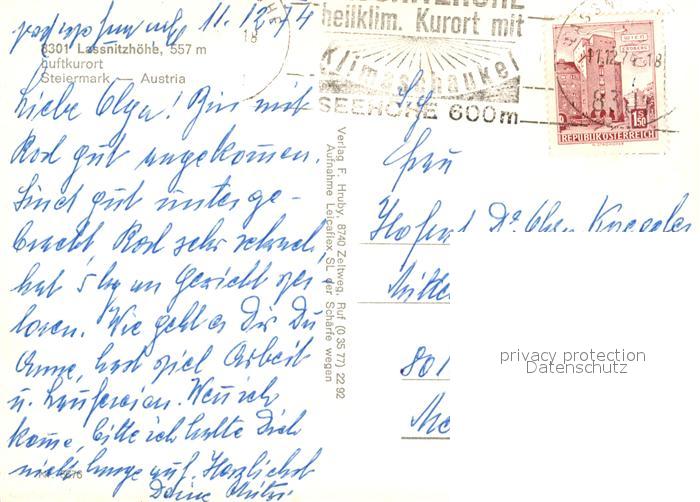 11.12.74
8301 Lassnitzhöhe, 557 m
Luftkurort
Steiermark — Austria
Liebe Olga! Bin mit
Karl gut angekommen.
Sind gut unterge-
bracht, Karl sehr schwach,
hat 5 kg an Gewicht ver-
loren. Wie geht es Dir Du
Arme, hast viel Arbeit
u. Lauferein. Wenn ich
komme, bitte ich halte Dich
nicht lange auf. Herzlichst
Deine Mitzi
Verlag F. Hruby, 8740 Zeltweg, Ruf (0 35 77) 22 92
Aufnahme Leicaflex SL der Schärfe wegen
heilklim. Kurort mit
Klimaschaukel
SEEHÖHE 600m
11.12.74-18
8301
WIEN
ERDBERG
S 1.50
REPUBLIK ÖSTERREICH
Frau
Hofrat Dr.
801
privacy protection
Datenschutz